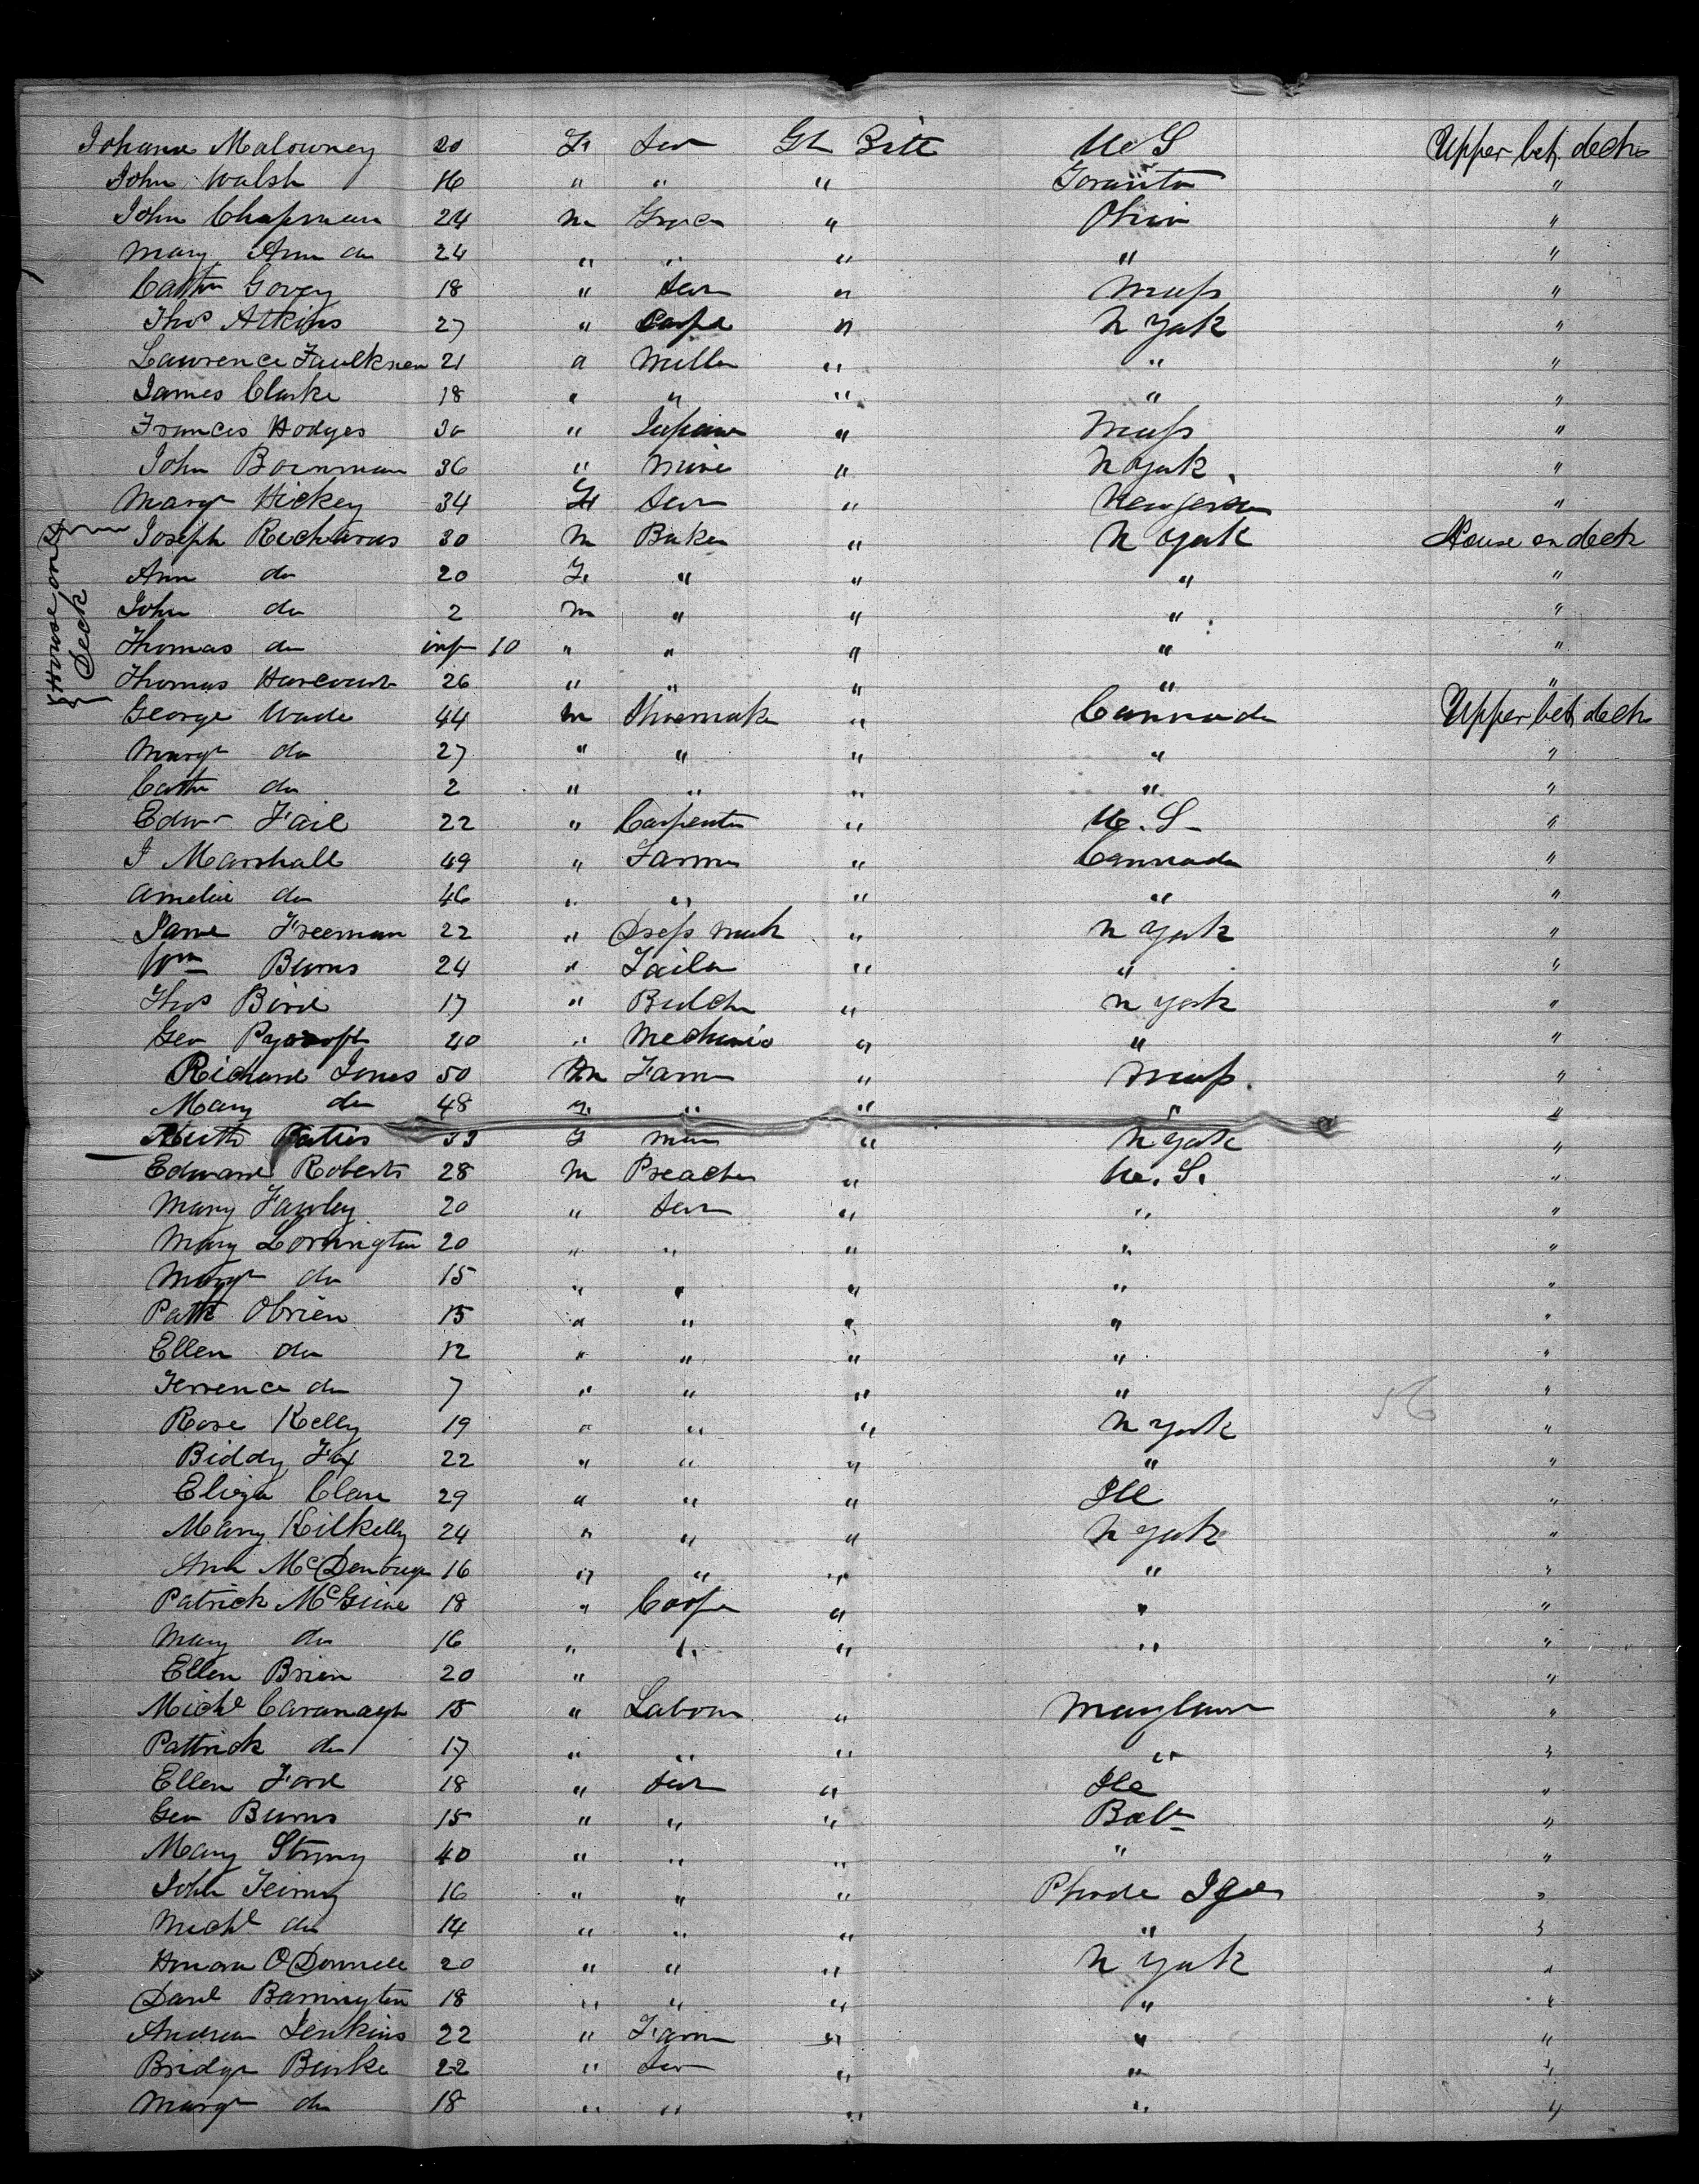 Johana Malowney 20 F. Ser Gt Britt U S Upper bet. decks
John Walsh 16 " " " Toranto "
John Chapman 24 m Groce " Ohio "
Mary Ann do 24 " " " " "
Cathn Govey 18 " Ser " Mass "
Thos Atkins 27 " Carpe " N York "
Lawrence Faulkner 21 " Miller " " "
James Clarke 18 " " " " "
Frances Hodges 30 " " Mass "
John Bornman 36 " Mine " N York "
Margt Hickey 34 F Ser " New Jersey "
Joseph Richards 30 m Baker " N York House on deck
Ann do 20 F. " " " "
John do 2 m " " " "
Thomas do inf 10 " " " " "
Thomas Harcourt 26 " " " " "
House on Deck
George Wade 44 m Shoemaker " Cannada Upper bet decks
Margt do 27 " " " " "
Cathn do 2 " " " " "
Edwd Fail 22 " Carpenter " U. S. "
J Marshall 49 " Farmer " Cannada "
Amelia do 46 " " " " "
Jane Freeman 22 " Dress mak " N York "
Wm Burns 24 " Tailor " " "
Thos Bird 17 " Butcher " N York "
Geo 40 " Mechanic " " "
Richard Jones 50 m Farm " Mass. "
Mary do 48 F. " " " "
Ruth 33 F " N York "
Edward Roberts 28 m Preacher " U. S. "
Mary Fawley 20 " Ser " " "
Mary Lornington 20 " " " " "
Margt do 15 " " " " "
Patk Obrien 15 " " " " "
Ellen do 12 " " " " "
Terrence do 7 " " " " "
Rose Kelly 19 " " " N York "
Biddy Fox 22 " " " " "
Eliza Clare 29 " " " Ill "
Mary Kilkelly 24 " " " N York "
Ann McDonough 16 " " " " "
Patrick McGuire 18 " Coope " " "
Mary do 16 " " " " "
Ellen Brien 20 " "
Michl Cavanagh 15 " Labour " Maryland "
Pattrick do 17 " " " " "
Ellen Ford 18 " Ser " Ill "
Geo Burns 15 " " " Balt "
Mary Strong 40 " " " " "
John 16 " " " Rhode "
Michl do 14 " " " " "
Honora O'Donnell 20 " " " N York "
Danl Barrington 18 " " " " "
Andrew Jenkins 22 " Farm " " "
Bridgt Burke 22 " Ser " " "
Margt do 18 " " " " "